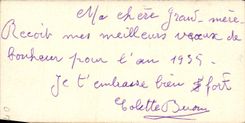 Ma chère Grand-mère
Reçoit mes meilleurs vœux de
bonheur pour l'an 1935.
Je t'embrasse bien fort
Colette